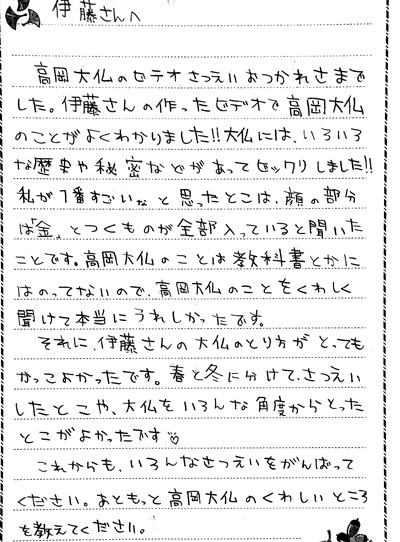 伊藤さんへ
高岡大仏のビデオさつえいおつかれさまで
した。伊藤さんの作ったビデオで高岡大仏
のことがよくわかりました!!大仏には、いろいろ
な歴史や秘密などがあってビックリしました!!
私が1番すごいなと思ったとこは、顔の部分
は「金」とつくものが全部入っていると聞いた
ことです。高岡大仏のことは教科書とかに
はのってないので、高岡大仏のことをくわしく
聞けて本当にうれしかったです。
それに、伊藤さんの大仏のとり方がとっても
かっこよかったです。春と冬に分けて、さつえい
したとこや、大仏をいろんな角度からとった
とこがよかったです♡
これからも、いろんなさつえいをがんばって
ください。あともっと高岡大仏のくわしいところ
を教えてください。